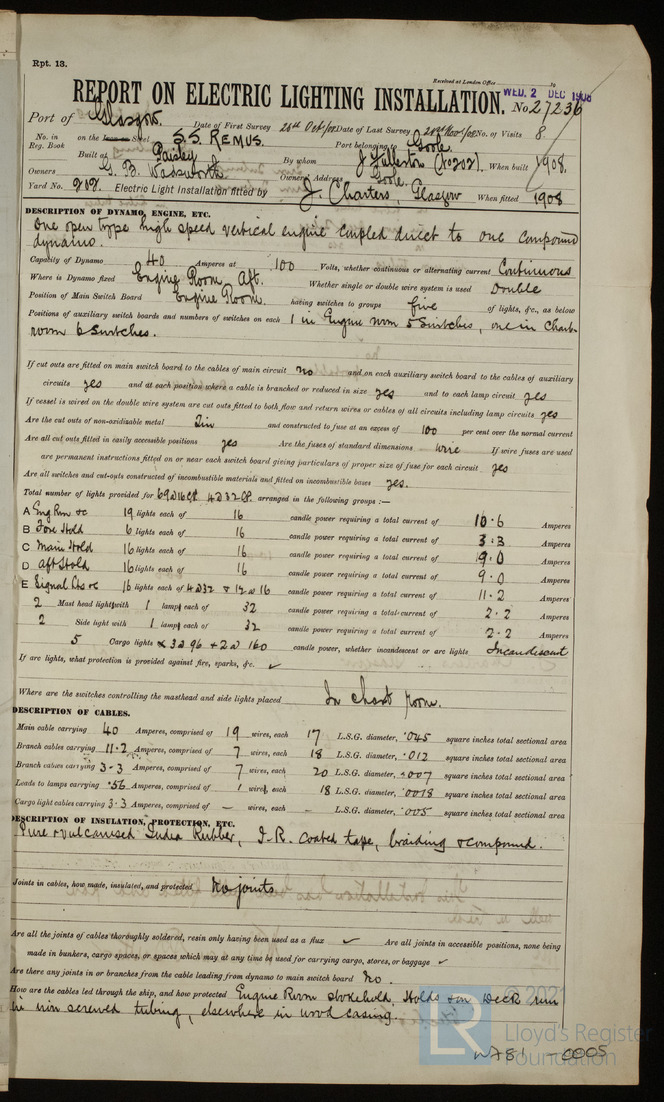 Rpt. 13.
Received at London Office
WED. 2 DEC 1908
REPORT ON ELECTRIC LIGHTING INSTALLATION. No 27236
Port of Glasgow. Date of First Survey 26th Oct/08 Date of Last Survey Nov/08 No. of Visits 8.
No. in Reg. Book on the Iron or Steel S.S. REMUS. Port belonging to Goole.
Built at Paisley By whom J Fullerton (No 202). When built 1908.
Owners G. B. Wadsworth Owners' Address Goole.
Yard No. 202. Electric Light Installation fitted by J. Charters, Glasgow When fitted 1908
DESCRIPTION OF DYNAMO, ENGINE, ETC.
One open type high speed vertical engine coupled direct to one compound
dynamo.
Capacity of Dynamo 40 Amperes at 100 Volts, whether continuous or alternating current Continuous
Where is Dynamo fixed Engine Room Aft. Whether single or double wire system is used Double
Position of Main Switch Board Engine Room. having switches to groups five of lights, &c., as below
Positions of auxiliary switch boards and numbers of switches on each 1 in Engine room 5 Switches, one in Chart-
room 6 Switches.
If cut outs are fitted on main switch board to the cables of main circuit no and on each auxiliary switch board to the cables of auxiliary
circuits yes and at each position where a cable is branched or reduced in size yes and to each lamp circuit yes
If vessel is wired on the double wire system are cut outs fitted to both flow and return wires or cables of all circuits including lamp circuits yes
Are the cut outs of non-oxidisable metal Tin and constructed to fuse at an excess of 100 per cent over the normal current
Are all cut outs fitted in easily accessible positions yes Are the fuses of standard dimensions wire If wire fuses are used
are permanent instructions fitted on or near each switch board giving particulars of proper size of fuse for each circuit yes
Are all switches and cut-outs constructed of incombustible materials and fitted on incombustible bases yes.
Total number of lights provided for 69 @ 16 CP 4 @ 32 CP. arranged in the following groups :—
A Eng Rm &c 19 lights each of 16 candle power requiring a total current of 10.6 Amperes
B Fore Hold 6 lights each of 16 candle power requiring a total current of 3.3 Amperes
C Main Hold 16 lights each of 16 candle power requiring a total current of 9.0 Amperes
D Aft Hold 16 lights each of 16 candle power requiring a total current of 9.0 Amperes
E Signal Lts &c 16 lights each of 4 @ 32 & 12 @ 16 candle power requiring a total current of 11.2 Amperes
2 Mast head light with 1 lamp each of 32 candle power requiring a total current of 2.2 Amperes
2 Side light with 1 lamp each of 32 candle power requiring a total current of 2.2 Amperes
5 Cargo lights 3 @ 96 + 2 @ 160 candle power, whether incandescent or arc lights Incandescent
If arc lights, what protection is provided against fire, sparks, &c. ✓
Where are the switches controlling the masthead and side lights placed In chart room.
DESCRIPTION OF CABLES.
Main cable carrying 40 Amperes, comprised of 19 wires, each 17 L.S.G. diameter, .045 square inches total sectional area
Branch cables carrying 11.2 Amperes, comprised of 7 wires, each 18 L.S.G. diameter, .012 square inches total sectional area
Branch cables carrying 3.3 Amperes, comprised of 7 wires, each 20 L.S.G. diameter, .007 square inches total sectional area
Leads to lamps carrying .56 Amperes, comprised of 1 wires, each 18 L.S.G. diameter, .0018 square inches total sectional area
Cargo light cables carrying 3.3 Amperes, comprised of – wires, each – L.S.G. diameter, .005 square inches total sectional area
DESCRIPTION OF INSULATION, PROTECTION, ETC.
Pure & vulcanised India Rubber, I.R. coated tape, braiding & compound.
Joints in cables, how made, insulated, and protected No joints
Are all the joints of cables thoroughly soldered, resin only having been used as a flux ✓ Are all joints in accessible positions, none being
made in bunkers, cargo spaces, or spaces which may at any time be used for carrying cargo, stores, or baggage ✓
Are there any joints in or branches from the cable leading from dynamo to main switch board No.
How are the cables led through the ship, and how protected Engine Room stokehold, Holds & on Deck run
in iron screwed tubing, elsewhere in wood casing.
© 2021
LR
Lloyd's Register
Foundation
W781-0005